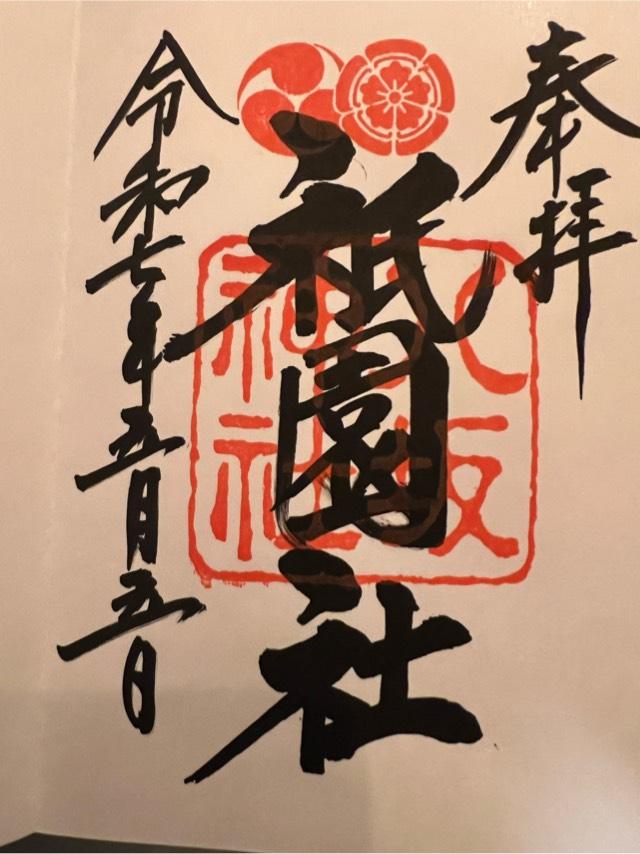 奉拝
祇園社
八坂
神社
令和七年五月五日